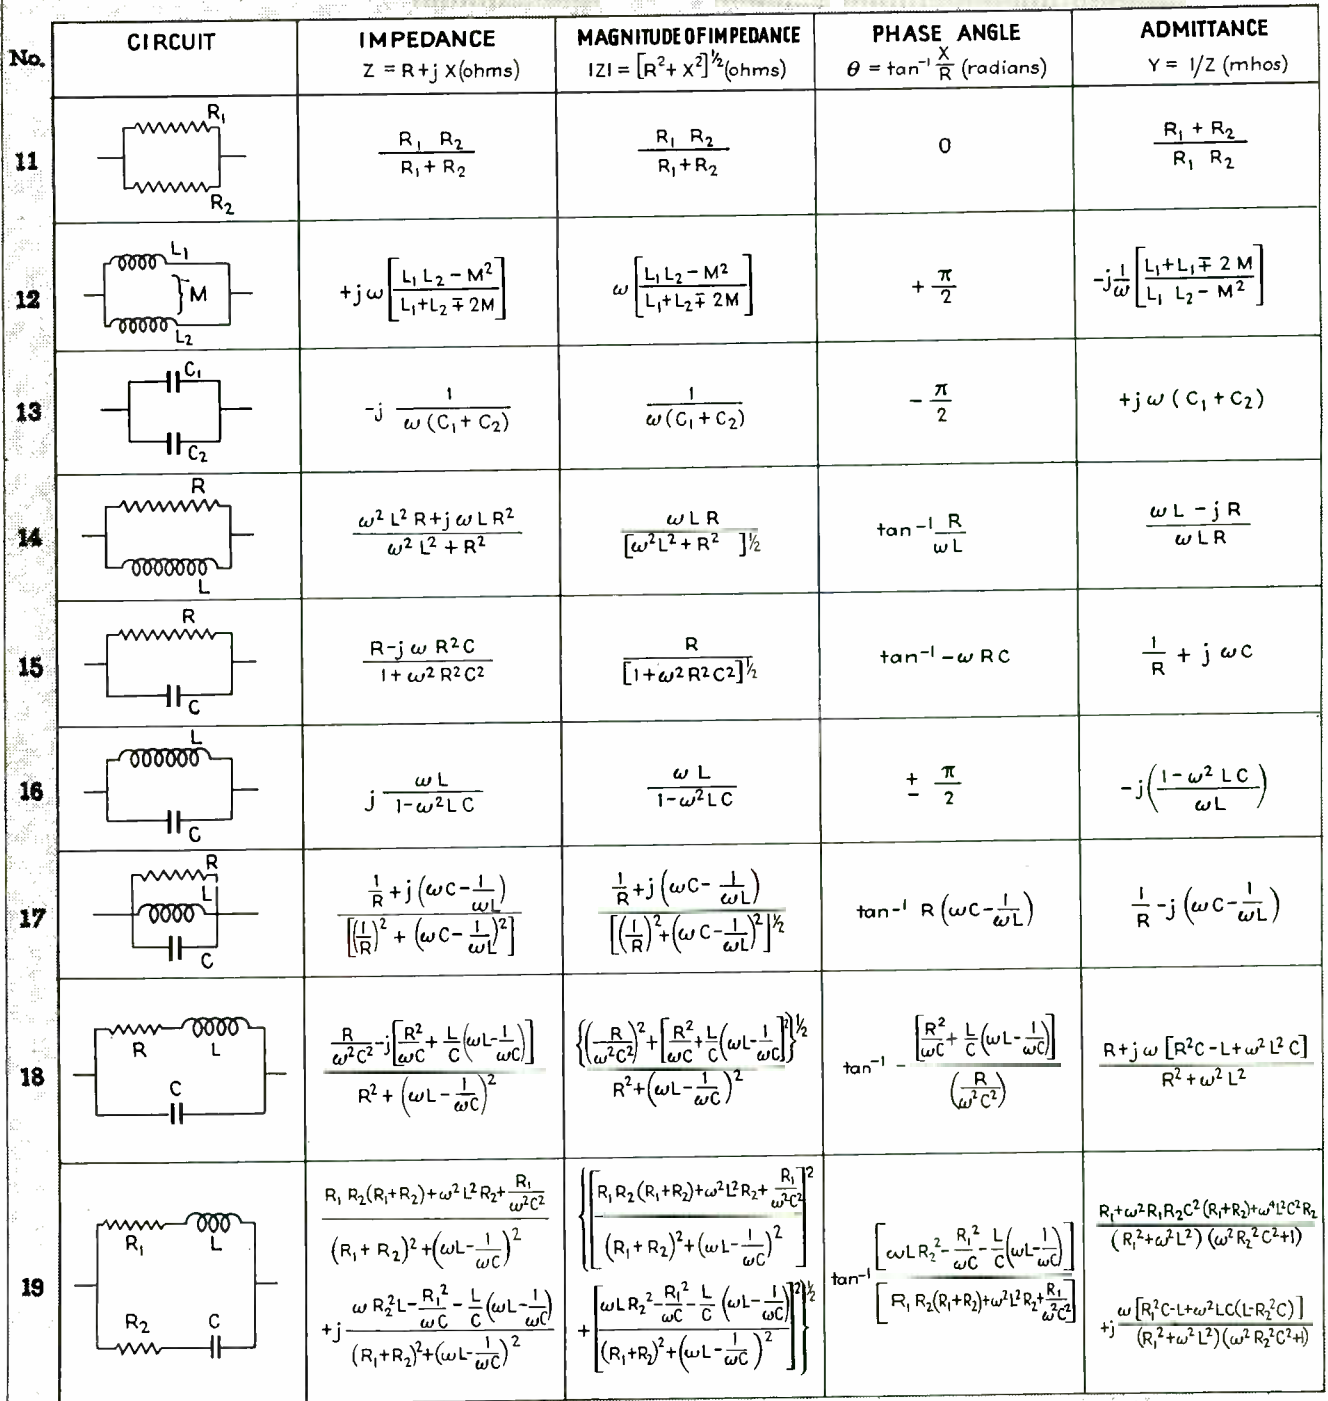 No. CIRCUIT IMPEDANCE MAGNITUDE OF IMPEDANCE PHASE ANGLE ADMITTANCE
Z = R+j X(ohms) |Z| = [R²+ X²]^½(ohms) θ = tan⁻¹ X/R (radians) Y = 1/Z (mhos)
11 R₁ R₂ (R₁ R₂)/(R₁+R₂) (R₁ R₂)/(R₁+R₂) 0 (R₁ + R₂)/(R₁ R₂)
12 L₁ M L₂ +jω[(L₁ L₂ – M²)/(L₁+L₂ ∓ 2M)] ω[(L₁ L₂ – M²)/(L₁+L₂ ∓ 2M)] + π/2 -j 1/ω [(L₁+L₁ ∓ 2 M)/(L₁ L₂ – M²)]
13 C₁ C₂ -j 1/(ω (C₁ + C₂)) 1/(ω (C₁ + C₂)) – π/2 +j ω ( C₁ + C₂)
14 R L (ω² L² R+j ω L R²)/(ω² L² + R²) (ω L R)/[ω²L² + R² ]^½ tan⁻¹ R/(ω L) (ω L – j R)/(ω L R)
15 R C (R–j ω R²C)/(1+ ω² R²C²) R/[1+ω² R²C²]^½ tan⁻¹ –ω R C 1/R + j ω C
16 L C j ω L/(1-ω²L C) ω L/(1-ω²LC) ± π/2 -j((1–ω² L C)/(ω L))
17 R L C (1/R + j (ωC - 1/(ωL)))/[(1/R)² + (ωC – 1/(ωL))²] (1/R + j (ωC - 1/(ωL)))/[(1/R)² + (ωC – 1/(ωL))²]^½ tan⁻¹ R (ωC - 1/(ωL)) 1/R -j (ωC - 1/(ωL))
18 R L C (R/(ω²C²) -j[R²/(ωC) + L/C (ωL - 1/(ωC))])/(R² + (ωL - 1/(ωC))²) {(R/(ω²C²))² + [R²/(ωC) + L/C (ωL - 1/(ωC))]²}^½/(R² + (ωL - 1/(ωC))²) tan⁻¹ – [R²/(ωC) + L/C (ωL - 1/(ωC))]/(R/(ω²C²)) (R+j ω [R²C – L+ω²L²C])/(R² + ω² L²)
19 R₁ L R₂ C (R₁ R₂(R₁+R₂)+ω²L²R₂+ R₁/(ω²C²))/((R₁ + R₂)² +(ωL - 1/(ωC))²) +j (ω R₂²L - R₁²/(ωC) - L/C (ωL - 1/(ωC)))/((R₁+R₂)²+(ωL - 1/(ωC))²) {[(R₁ R₂(R₁+R₂)+ω²L²R₂+ R₁/(ω²C²))/((R₁ + R₂)²+(ωL - 1/(ωC))²)]² + [(ωL R₂² - R₁²/(ωC) - L/C (ωL - 1/(ωC)))/((R₁+R₂)²+(ωL - 1/(ωC))²)]²}^½ tan⁻¹ [ωL R₂² - R₁²/(ωC) - L/C (ωL - 1/(ωC))]/[R₁ R₂(R₁+R₂)+ω²L²R₂+ R₁/(ω²C²)] (R₁+ω²R₁R₂C²(R₁+R₂)+ω⁴L²C²R₂)/((R₁²+ω²L²) (ω²R₂²C²+1)) +j (ω [R₁²C-L+ω²LC(L-R₂²C)])/((R₁²+ω²L²)(ω²R₂²C²+1))